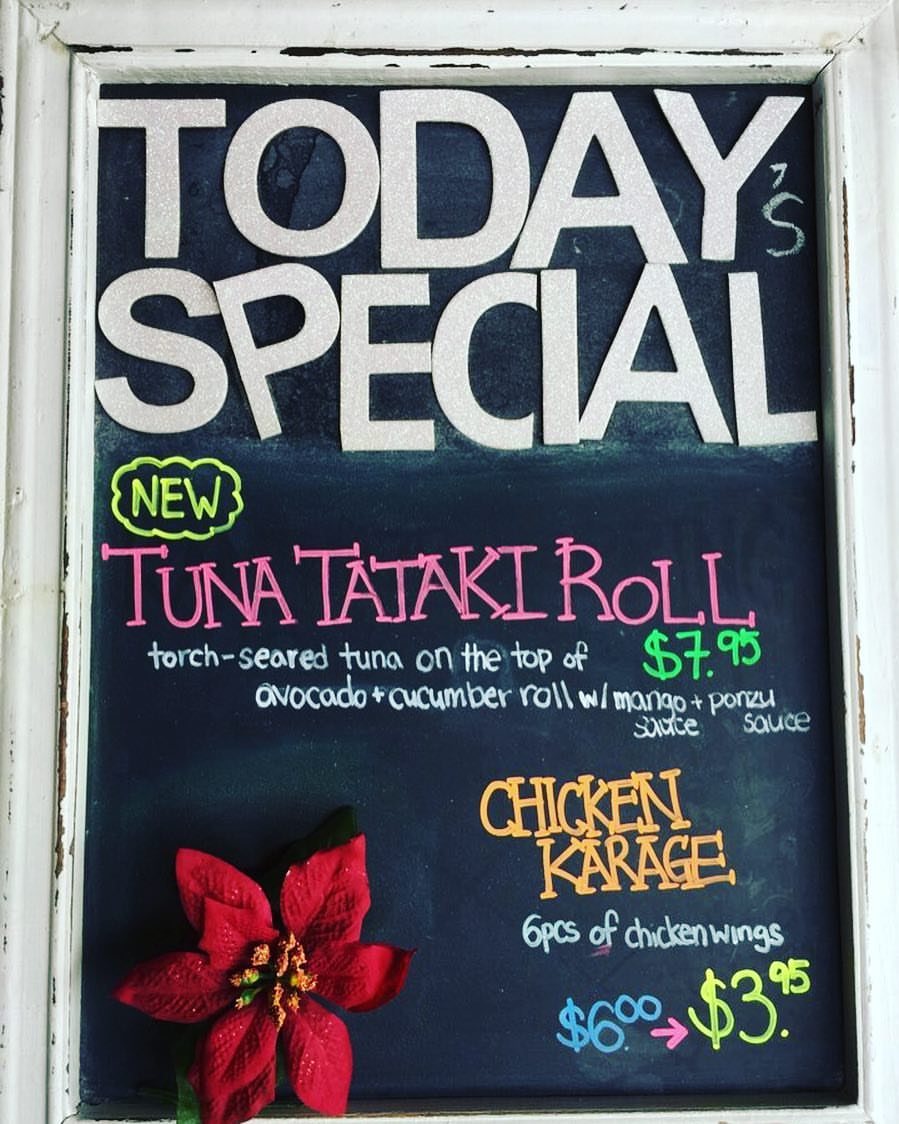 TODAY'S
SPECIAL
NEW
TUNA TATAKI ROLL
$7.95
torch-seared tuna on the top of
avocado + cucumber roll w/ mango + ponzu
sauce sauce
CHICKEN
KARAGE
6pcs of chicken wings
$6.00 → $3.95